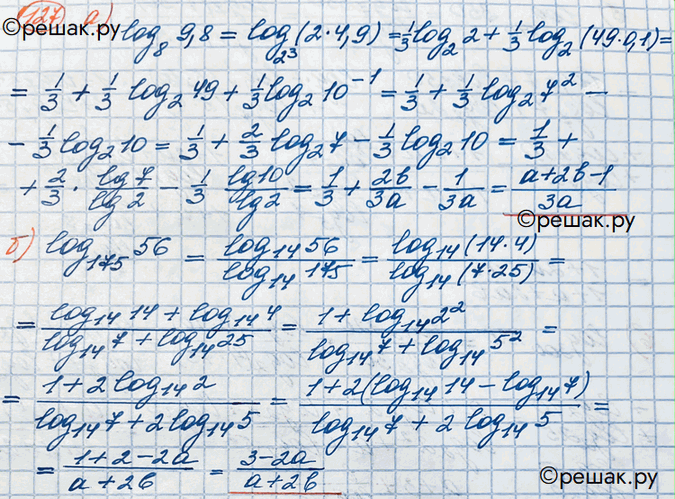 127 а)
©решак.ру
log₈ 9,8 = log₂₃ (2·4,9) = 1/3 log₂ 2 + 1/3 log₂ (49·0,1) =
©решак.ру
= 1/3 + 1/3 log₂ 49 + 1/3 log₂ 10⁻¹ = 1/3 + 1/3 log₂ 7² −
− 1/3 log₂ 10 = 1/3 + 2/3 log₂ 7 − 1/3 log₂ 10 = 1/3 +
+ 2/3 · lg 7/lg 2 − 1/3 lg 10/lg 2 = 1/3 + 2b/3a − 1/3a = (a+2b−1)/3a
©решак.ру
б) log₁₇₅ 56 = log₁₄ 56/log₁₄ 175 = log₁₄ (14·4)/log₁₄ (7·25) =
= (log₁₄ 14 + log₁₄ 4)/(log₁₄ 7 + log₁₄ 25) = (1 + log₁₄ 2²)/(log₁₄ 7 + log₁₄ 5²) =
= (1 + 2 log₁₄ 2)/(log₁₄ 7 + 2 log₁₄ 5) = (1 + 2(log₁₄ 14 − log₁₄ 7))/(log₁₄ 7 + 2 log₁₄ 5) =
= (1+2−2a)/(a+2b) = (3−2a)/(a+2b)
©решак.ру